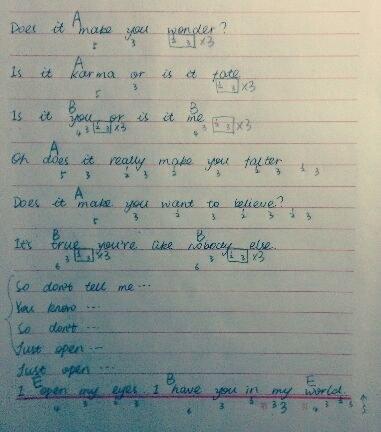 A
Does it make you wonder?
5 3 1/2 3 x3
A
Is it karma or is it fate
5 3 1/2 3 x3
B B
Is it you or is it me
4 3 1/2 3 x3 4 3 1/2 3 x3
A
Oh does it really make you falter
5 3 1/2 3 1/2 3 1/2 3 1/2 3
A
Does it make you want to believe?
5 3 1/2 3 1/2 3 1/2 3
B B
It's true you're like nobody else.
6 3 1/2 3 x3 6 3 1/2 3 x3
So don't tell me ...
You know ...
So don't ...
Just open ...
Just open ...
E B E
I open my eyes I have you in my world.